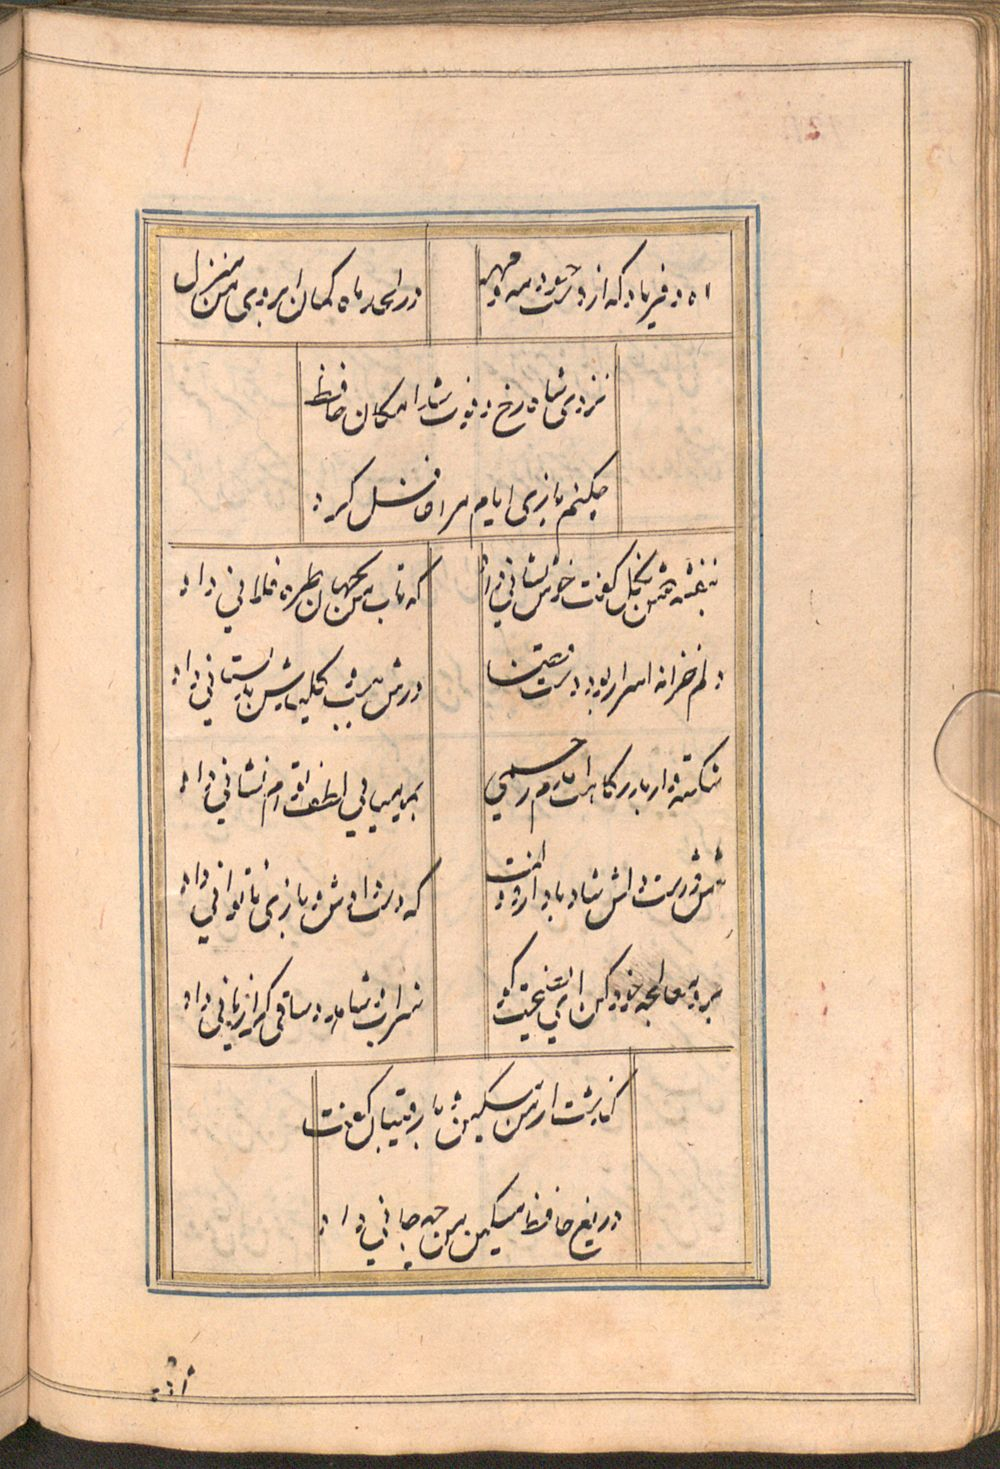 اه و فریاد که از دست حسود مه و مهر
در لحد ماه کمان ابروی من منزل
نزدی شاه رخ و فوت شد امکان حافظ
چکنم بازی ایام مرا غافل کرد
بنفشه دوش بگل گفت خوش نشانی داد
که تاب من بجهان طره فلانی داد
دلم خزانه اسرار بود و دست قضا
درش ببست و کلیدش بدلستانی داد
شکسته وار بدرگاهت امدم که طبیب
بمومیایی لطف توام نشانی داد
تنش درست و دلش شاد باد
که دست دادش و یاری ناتوانی داد
برو معالجه خود کن ای نصیحت گو
شراب و شاهد و ساقی کرا زیانی داد
گذشت از من مسکین و با رقیبان گفت
دریغ حافظ مسکین من چه جانی داد